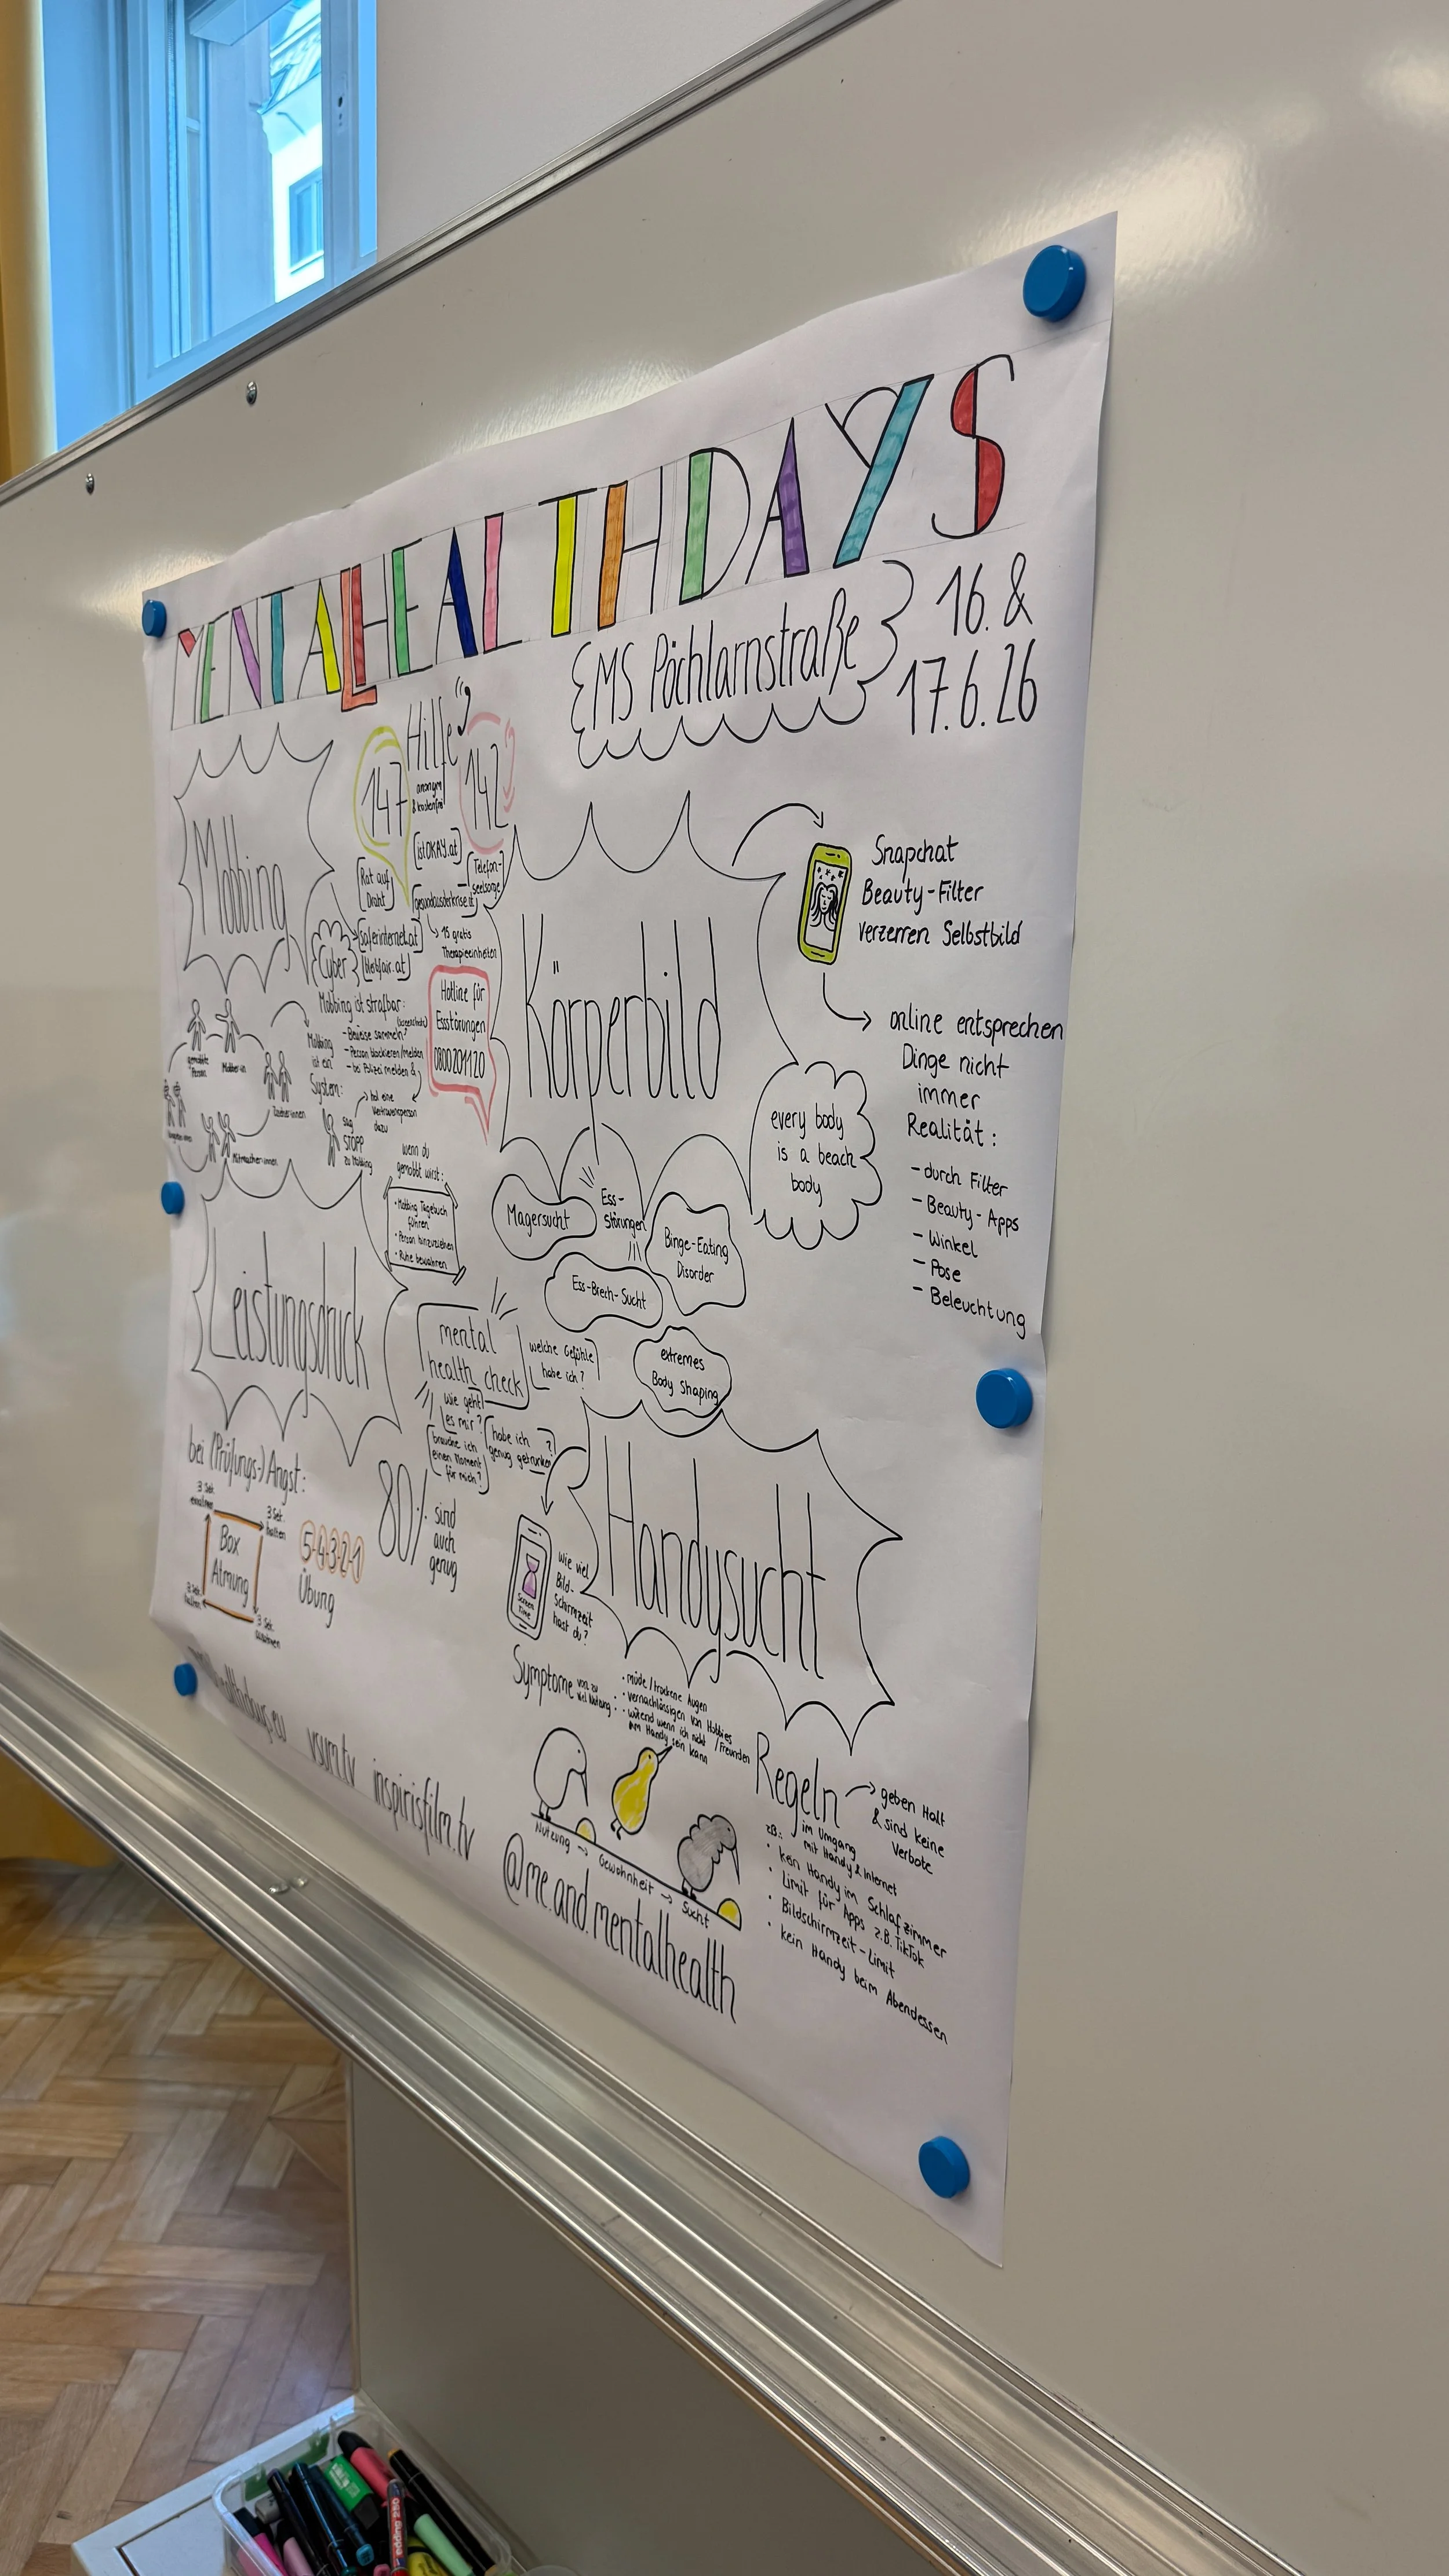 MENTAL HEALTH DAYS
EMS Pöchlarnstraße
16. &
17.6.26
Hilfe
147
anonym
& kostenfrei
142
istOKAY.at
Rat auf
Draht
Telefon-
seelsorge
gesundausderkrise.at
15 gratis
Therapieeinheiten
Mobbing
Cyber
Saferinternet.at
bleibfair.at
Mobbing ist strafbar:
- Beweise sammeln (Screenshots)
- Person blockieren/melden
- bei Polizei melden &
hol eine
Vertrauensperson
dazu
Mobbing
ist ein
System:
gemobbte
Person
Mobber:in
Zuseher:innen
Mitmacher:innen
Sag
STOPP
zu Mobbing
wenn du
gemobbt wirst:
• Mobbing Tagebuch
führen
• Person hinzuziehen
• Ruhe bewahren
Hotline für
Essstörungen
0800201120
Körperbild
Snapchat
Beauty-Filter
verzerren Selbstbild
online entsprechen
Dinge nicht
immer
Realität:
- durch Filter
- Beauty-Apps
- Winkel
- Pose
- Beleuchtung
every body
is a beach
body
Ess-
Störungen
Magersucht
Binge-Eating
Disorder
Ess-Brech-Sucht
extremes
Body Shaping
Leistungsdruck
mental
health check
welche Gefühle
habe ich?
wie geht
es mir?
brauche ich
einen Moment
für mich?
habe ich
genug getrunken?
bei (Prüfungs-)Angst:
3 Sek.
einatmen
3 Sek.
halten
Box
Atmung
3 Sek.
halten
3 Sek.
ausatmen
5-4-3-2-1
Übung
80%
sind
auch
genug
Handysucht
Screen
Time
wie viel
Bild-
Schirmzeit
hast du?
Symptome von zu
viel Nutzung:
• müde/trockene Augen
• vernachlässigen von Hobbies
/Freunden
• wütend wenn ich nicht
am Handy sein kann
Nutzung → Gewohnheit → Sucht
Regeln
geben Halt
& sind keine
Verbote
im Umgang
mit Handy & Internet
zB.:
• kein Handy im Schlafzimmer
• Limit für Apps z.B. TikTok
• Bildschirmzeit-Limit
• kein Handy beim Abendessen
vsum.tv
inspirisfilm.tv
@me.and.mentalhealth
edding 250